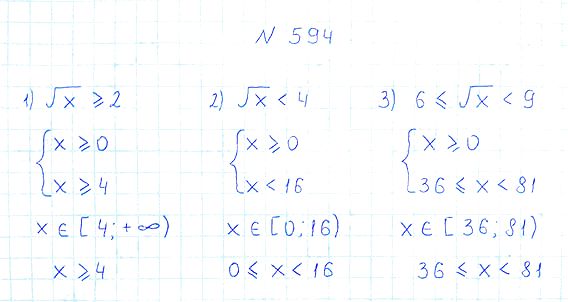 N 594
1) √x ⩾ 2
{ x ⩾ 0
x ⩾ 4
x ∈ [ 4; +∞)
x ⩾ 4
2) √x < 4
{ x ⩾ 0
x < 16
x ∈ [0; 16)
0 ⩽ x < 16
3) 6 ⩽ √x < 9
{ x ⩾ 0
36 ⩽ x < 81
x ∈ [ 36; 81)
36 ⩽ x < 81